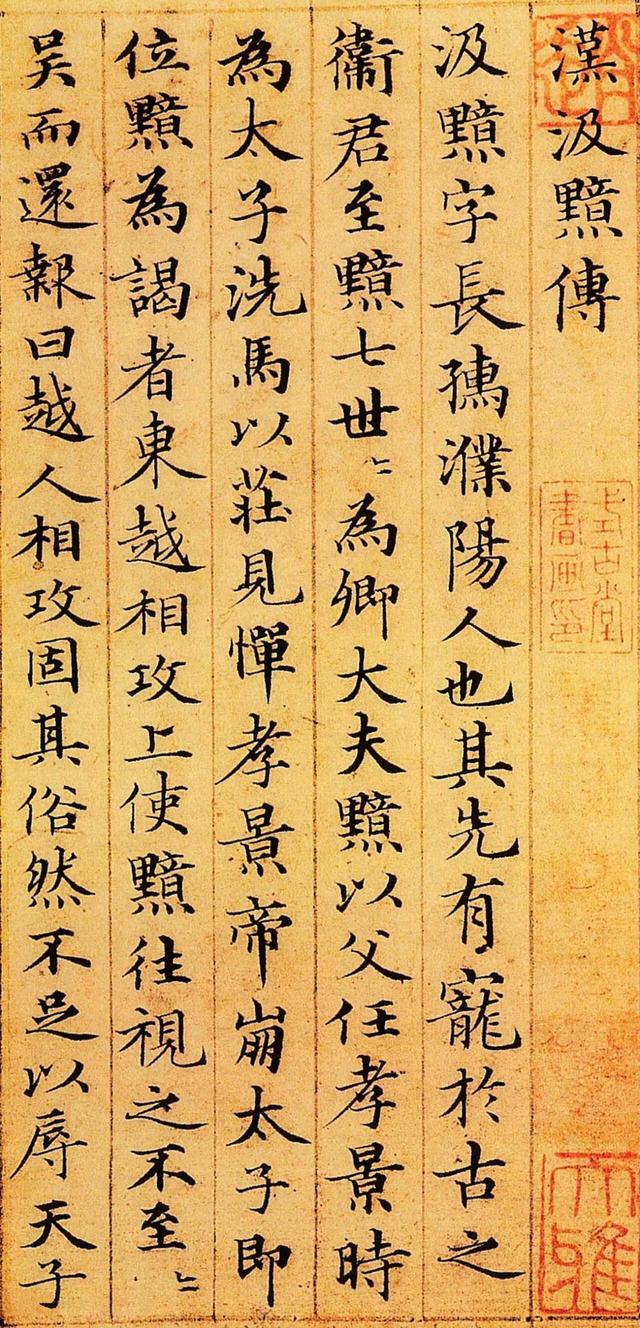 漢汲黯傳
汲黯字長孺濮陽人也其先有寵於古之
衛君至黯七世〻為卿大夫黯以父任孝景時
為太子洗馬以莊見憚孝景帝崩太子即
位黯為謁者東越相攻上使黯往視之不至〻
吴而還報曰越人相攻固其俗然不足以辱天子
式古堂
書畫印
大雅